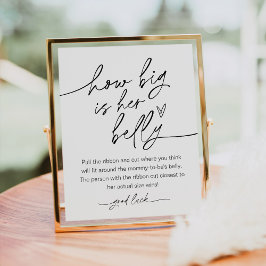 how big
is her
belly
Pull the ribbon and cut where you think
will fit around the mommy-to-be's belly.
The person with the ribbon cut closest to
her actual size wins!
good luck